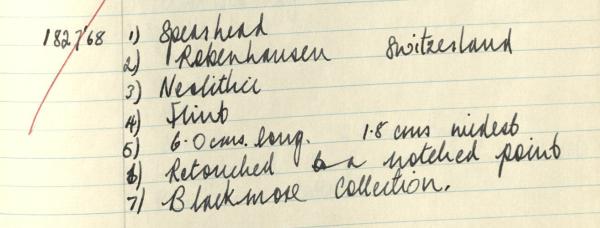 1827/68 1) Spearhead
2) Robenhausen Switzerland
3) Neolithic
4) Flint
5) 6.0 cms. long. 1.8 cms widest
6) Retouched to a notched point
7) Blackmore Collection.